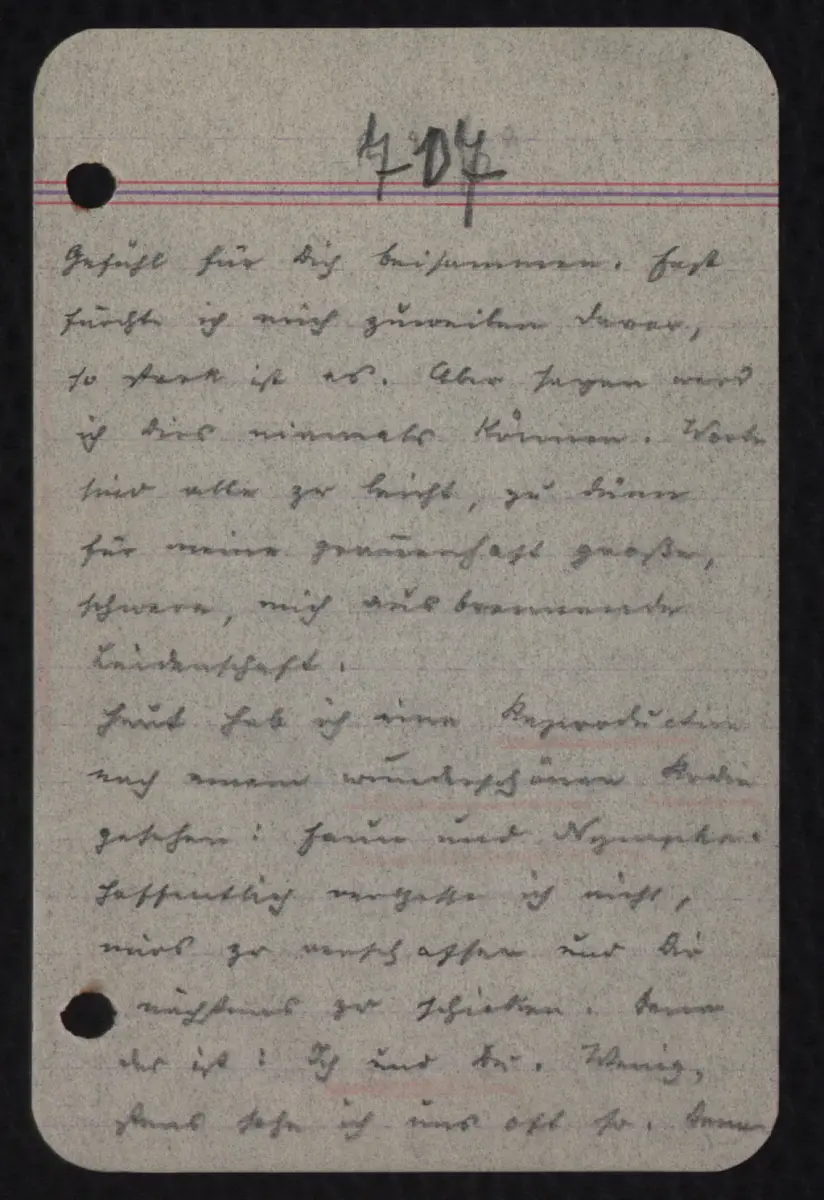 707
Gefühl für Dich beisammen. Fast
fürchte ich mich zuweilen davor,
so stark ist es. Aber sagen werd
ich dies niemals können. Worte
sind alle zu leicht, zu dünn
für meine grauenhaft große,
schwere, mich ausbrennende
Leidenschaft.
Heut hab ich eine Reproduction
nach einem wunderschönen Rodin
gesehen: Faun und Nymphe.
Hoffentlich vergesse ich nicht,
mirs zu verschaffen und Dir
nächstens zu schicken. Denn
das ist: Ich und Du. Wenig-
stens sehe ich uns oft so. Denn